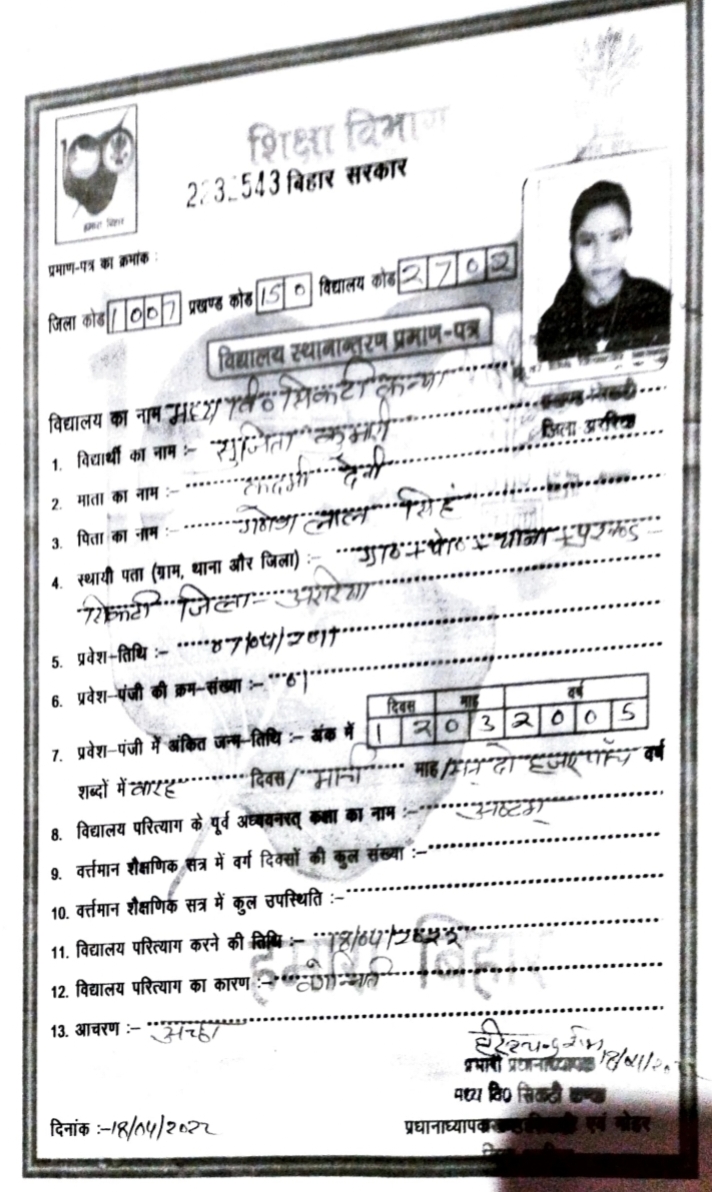 शिक्षा विभाग
बिहार सरकार
हमारा बिहार
प्रमाण-पत्र का क्रमांक :
जिला कोड 1007 प्रखण्ड कोड 150 विद्यालय कोड 2702
विद्यालय स्थानान्तरण प्रमाण-पत्र
विद्यालय का नाम मध्य वि० सिकटी कन्या
जिला अररिया
1. विद्यार्थी का नाम :- सुजिता कुमारी
2. माता का नाम :- देवी
3. पिता का नाम :- गणेश लाल सिंह
4. स्थायी पता (ग्राम, थाना और जिला) :- ग्रा०+पो०+थाना+
सिकटी जिला- अररिया
5. प्रवेश-तिथि :- 07/04/2011
6. प्रवेश-पंजी की क्रम-संख्या :- 61
दिवस माह वर्ष
7. प्रवेश-पंजी में अंकित जन्म-तिथि :- अंक में 12 03 2005
शब्दों में बारह दिवस/ मार्च माह/सन् दो हजार पाँच वर्ष
8. विद्यालय परित्याग के पूर्व अध्ययनरत् कक्षा का नाम :- अष्टम्
9. वर्त्तमान शैक्षणिक सत्र में वर्ग दिवसों की कुल संख्या :-
10. वर्त्तमान शैक्षणिक सत्र में कुल उपस्थिति :-
हमारा बिहार
11. विद्यालय परित्याग करने की तिथि :- 18/04/2022
12. विद्यालय परित्याग का कारण :- वर्गोन्नति
13. आचरण :- अच्छा
18/04/20
प्रभारी प्रधानाध्यापक
मध्य वि0 सिकटी कन्या
दिनांक :- 18/04/2022 प्रधानाध्यापक एवं मोहर